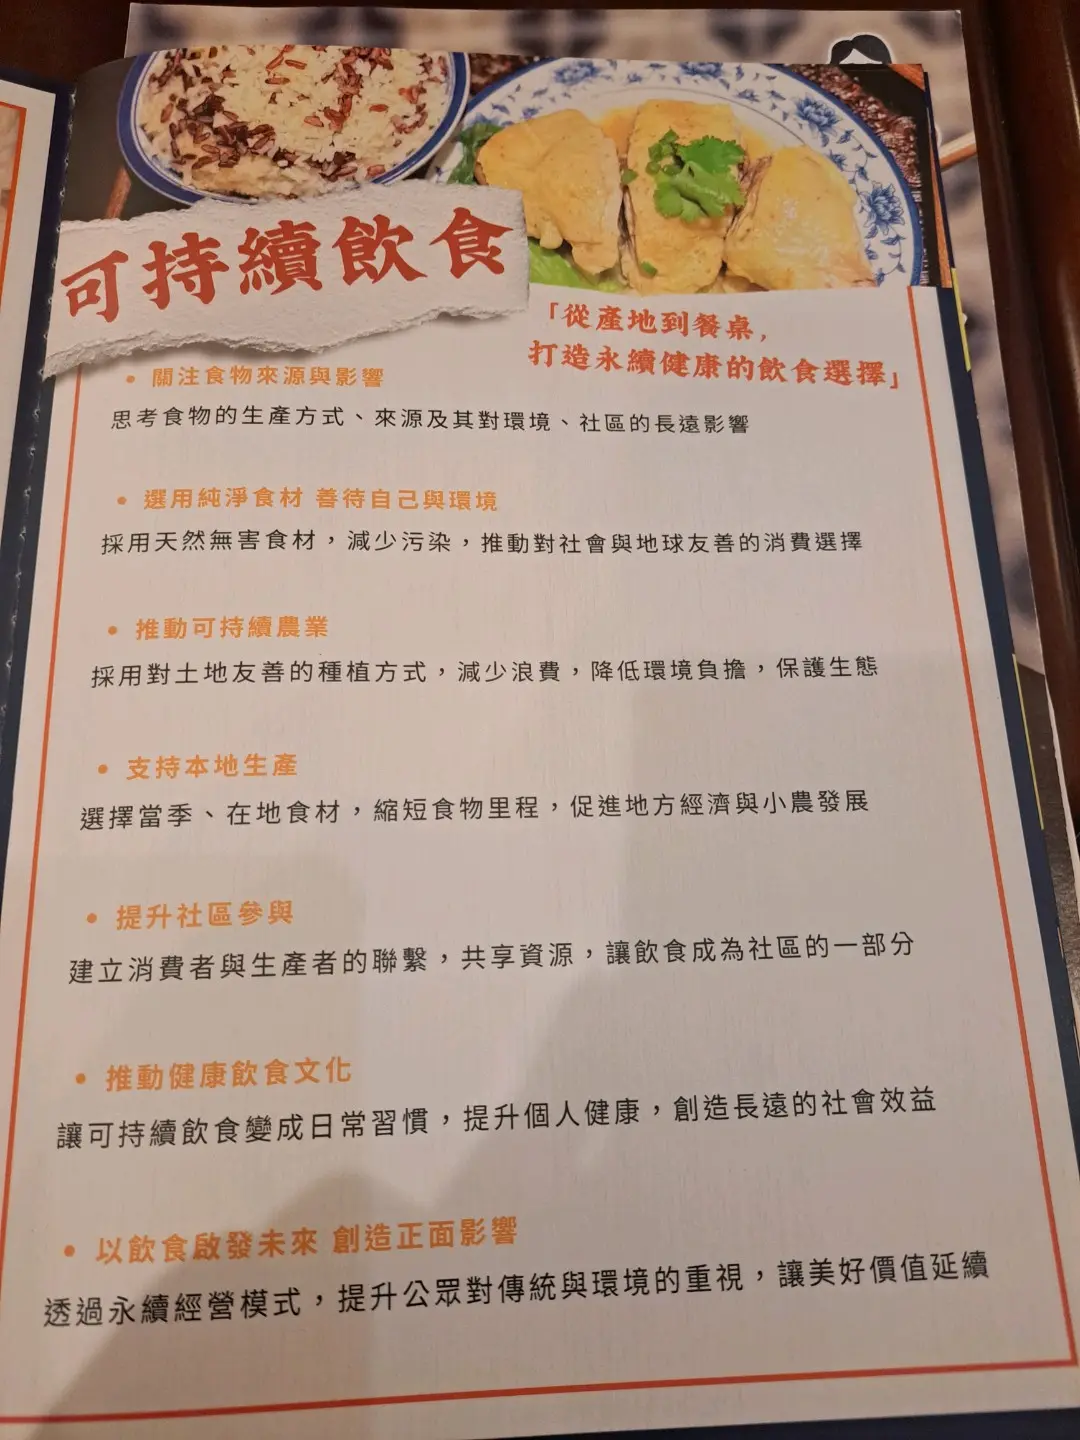 可持續飲食
「從產地到餐桌,
打造永續健康的飲食選擇」
• 關注食物來源與影響
思考食物的生產方式、來源及其對環境、社區的長遠影響
• 選用純淨食材 善待自己與環境
採用天然無害食材，減少污染，推動對社會與地球友善的消費選擇
• 推動可持續農業
採用對土地友善的種植方式，減少浪費，降低環境負擔，保護生態
• 支持本地生產
選擇當季、在地食材，縮短食物里程，促進地方經濟與小農發展
• 提升社區參與
建立消費者與生產者的聯繫，共享資源，讓飲食成為社區的一部分
• 推動健康飲食文化
讓可持續飲食變成日常習慣，提升個人健康，創造長遠的社會效益
• 以飲食啟發未來 創造正面影響
透過永續經營模式，提升公眾對傳統與環境的重視，讓美好價值延續